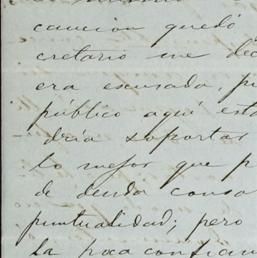 caucion quedó
cretario me dec
era escusada, pu
público aquí esta
dría soportar
lo mejor que p
de deuda conso
puntualidad; pero
la poca confian